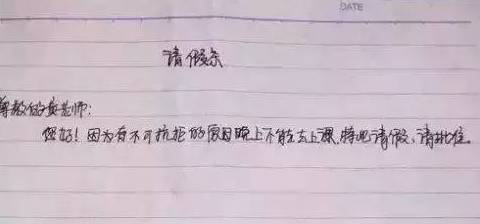 DATE
请假条
尊敬的吴老师:
您好!因为有不可抗拒的原因晚上不能去上课,特此请假,请批准。